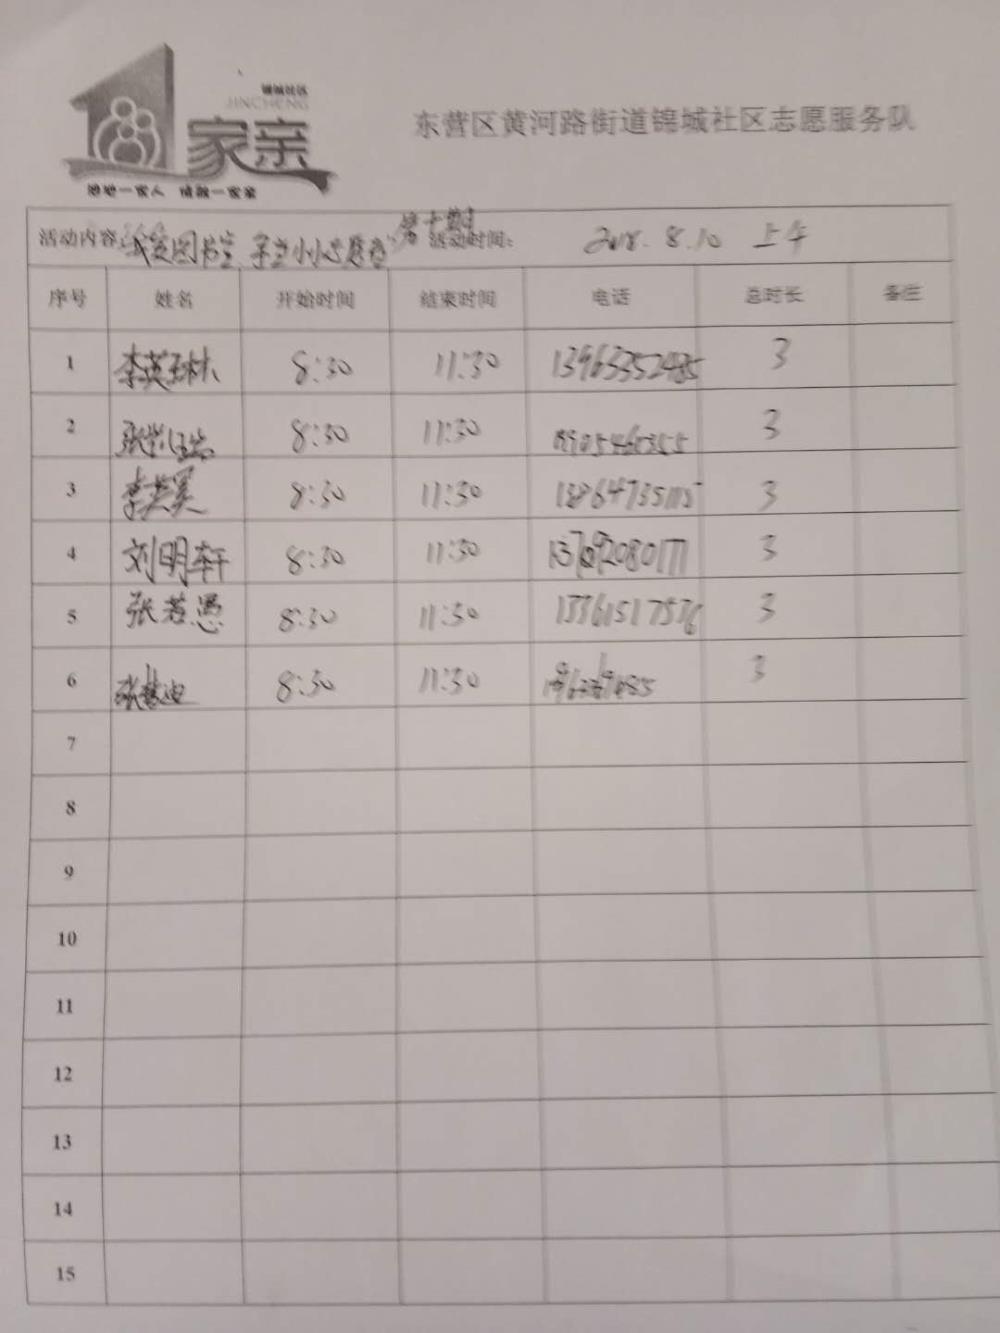 锦城社区
JINCHENG
家亲
东营区黄河路街道锦城社区志愿服务队
活动内容: 图书室 第十期 活动时间: 2018. 8.10 上午
序号 姓名 开始时间 结束时间 电话 总时长 备注
1 李英琳 8:30 11:30 13963352485 3
2 8:30 11:30 3
3 李英昊 8:30 11:30 13864735115 3
4 刘明轩 8:30 11:30 3
5 张若愚 8:30 11:30 13361517536 3
6 8:30 11:30 3
7
8
9
10
11
12
13
14
15